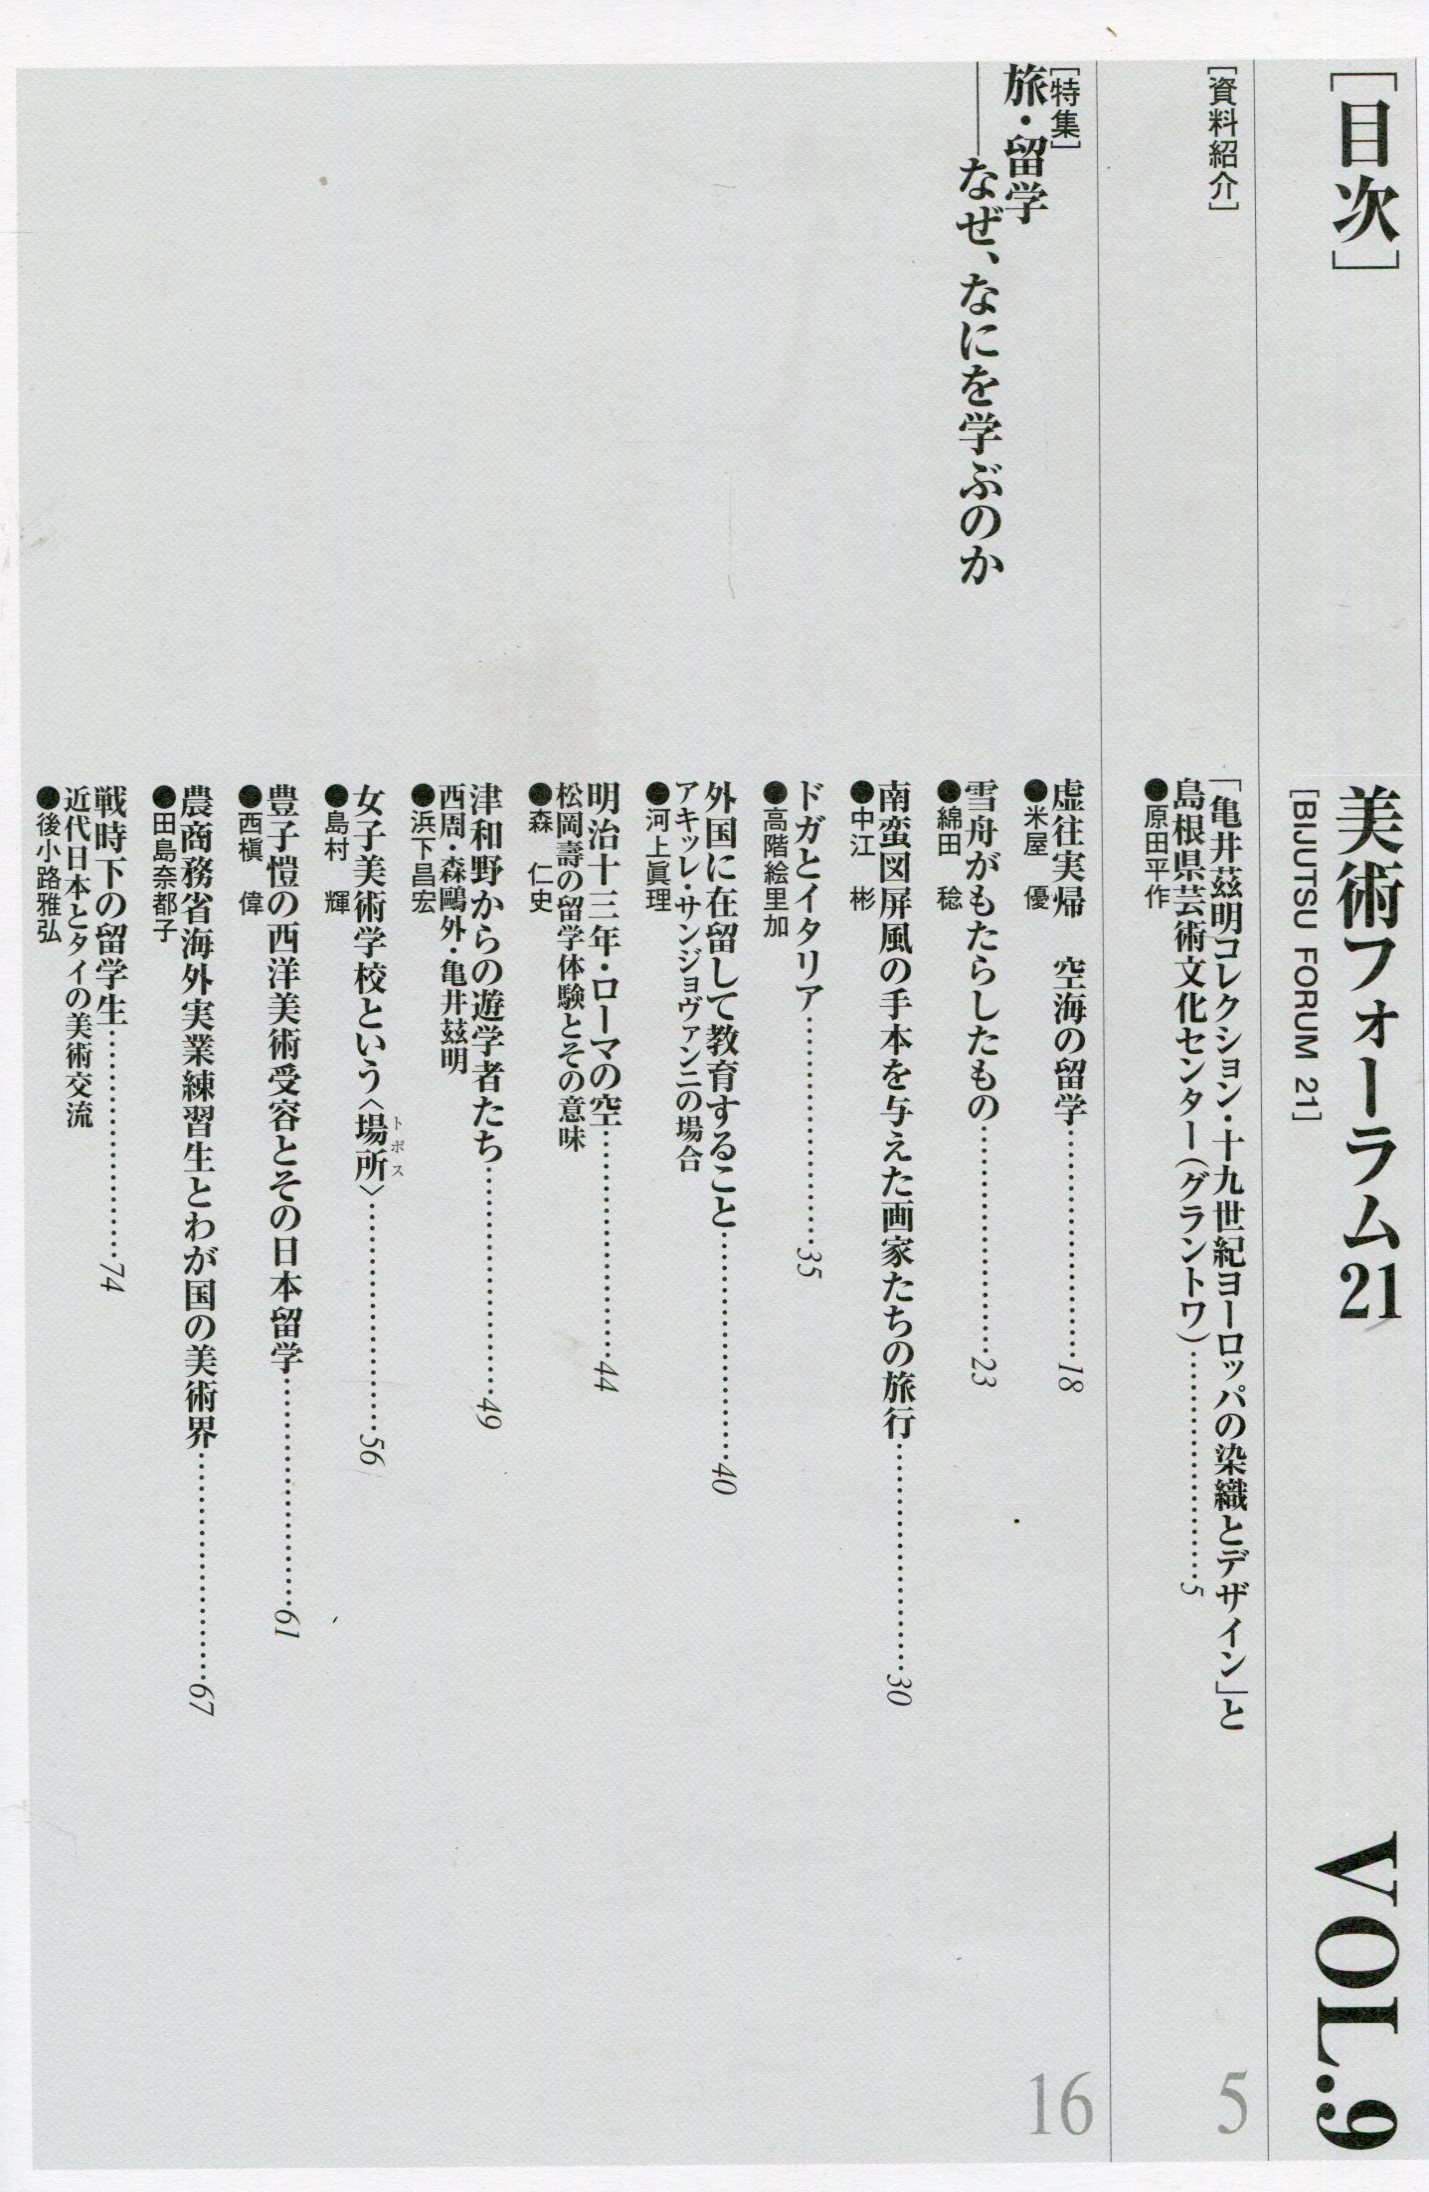 ［目次］
美術フォーラム21
［BIJUTSU FORUM 21］
VOL.9
［資料紹介］
「亀井茲明コレクション・十九世紀ヨーロッパの染織とデザイン」と
島根県芸術文化センター（グラントワ）……………………5
●原田平作
5
［特集］
旅・留学
――なぜ、なにを学ぶのか
16
虚往実帰　空海の留学……………………18
●米屋　優
雪舟がもたらしたもの……………………23
●綿田　稔
南蛮図屏風の手本を与えた画家たちの旅行……………………30
●中江　彬
ドガとイタリア……………………35
●高階絵里加
外国に在留して教育すること……………………40
アキッレ・サンジョヴァンニの場合
●河上眞理
明治十三年・ローマの空……………………44
松岡壽の留学体験とその意味
●森　仁史
津和野からの遊学者たち……………………49
西周・森鷗外・亀井茲明
●浜下昌宏
女子美術学校という〈場所〉……………………56
トポス
●島村　輝
豊子愷の西洋美術受容とその日本留学……………………61
●西槇　偉
農商務省海外実業練習生とわが国の美術界……………………67
●田島奈都子
戦時下の留学生……………………74
近代日本とタイの美術交流
●後小路雅弘